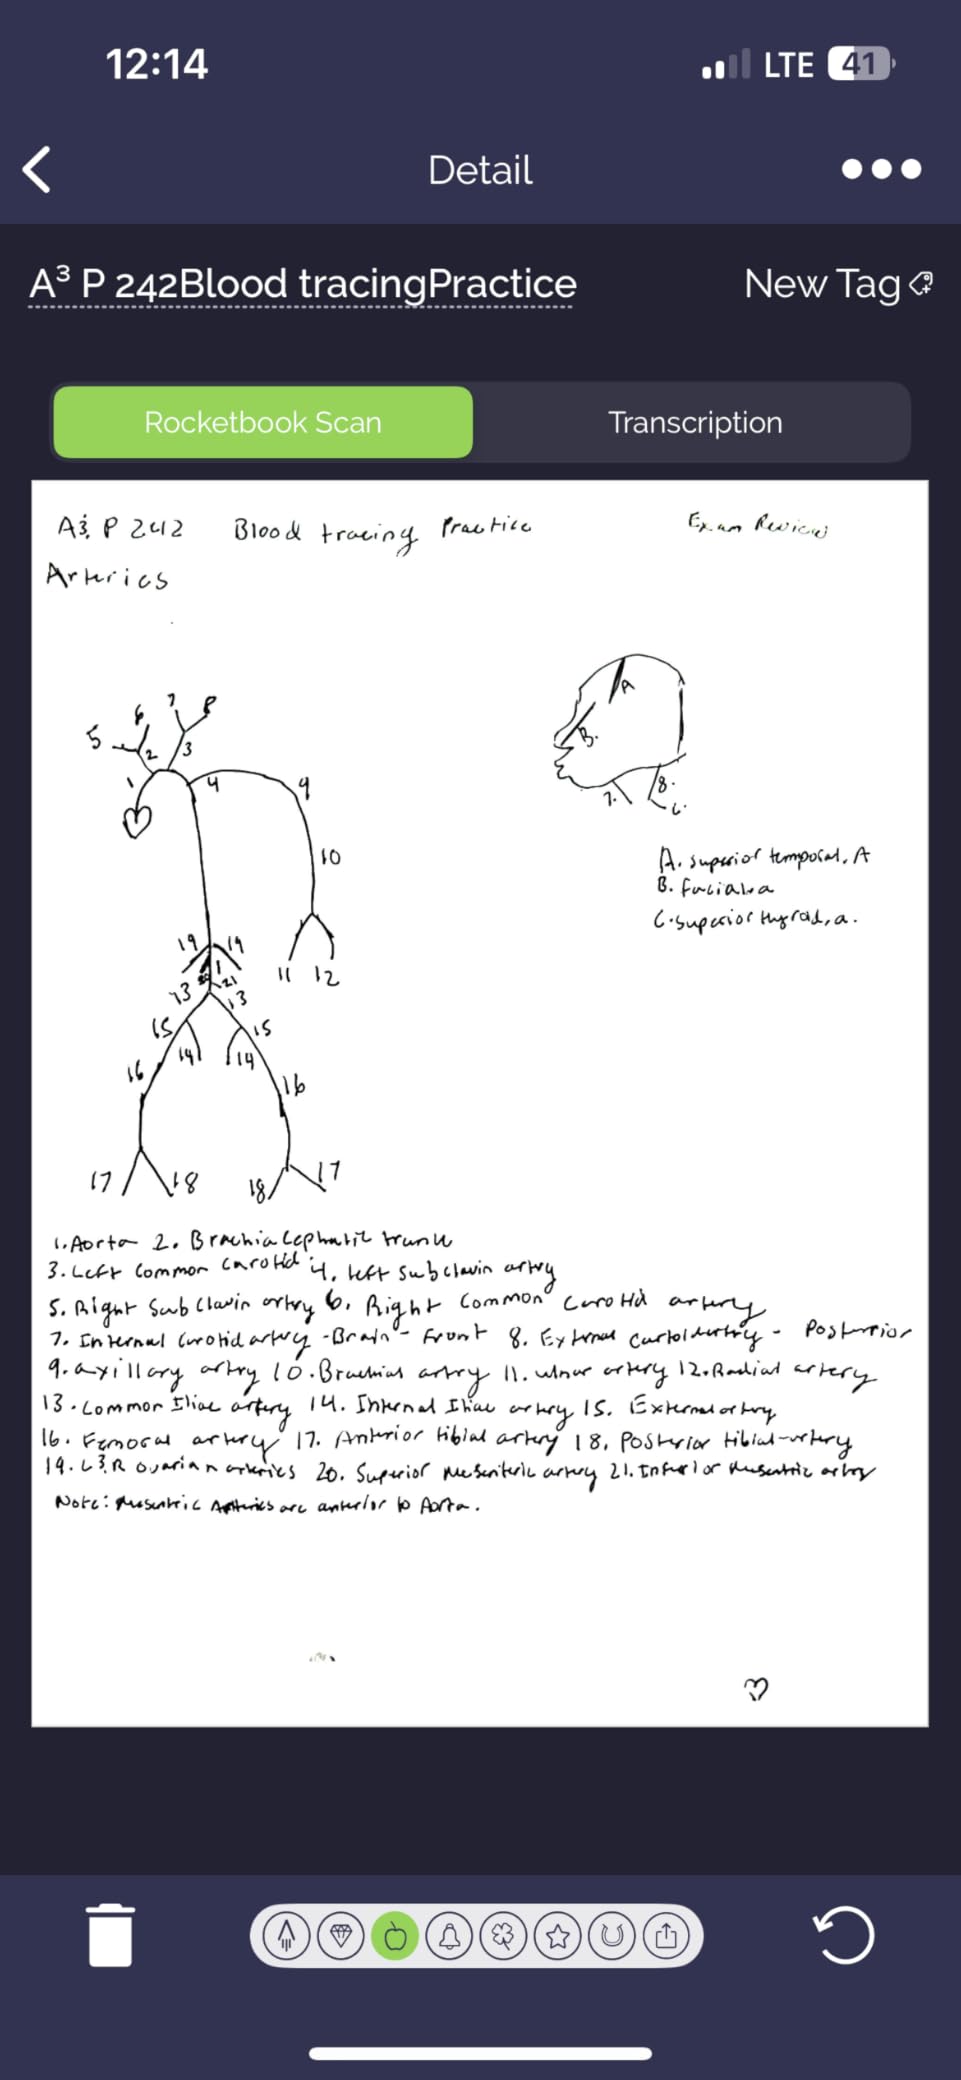 12:14
LTE 41
Detail
A³ P 242Blood tracingPractice
New Tag
Rocketbook Scan
Transcription
A&P 242 Blood tracing Practice Exam Review
Arteries
5 6 7 8
2 3
1 4 9
10
19 19
11 12
20 21
13 13
15 15
14 14
16 16
17 18 18 17
A
B.
7. 8.
C.
A. superior temporal, A
B. facial, a
C. superior thyroid, a.
1. Aorta 2. Brachiacephalic trunk
3. Left Common Carotid 4. left subclavin artery
5. Right Subclavin artery 6. Right Common Carotid artery
7. Internal Carotid artery - Brain - Front 8. External - Posterior
9. axillary artery 10. Brachial artery 11. ulnar artery 12. Radial artery
13. Common Iliac artery 14. Internal Iliac artery 15. External artery
16. Femoral artery 17. Anterior tibial artery 18. Posterior tibial-artery
19. L&R Ovarian arteries 20. Superior Mesenteric artery 21. Inferior Mesentric artery
Note: Mesentric Arteries are anterior to Aorta.